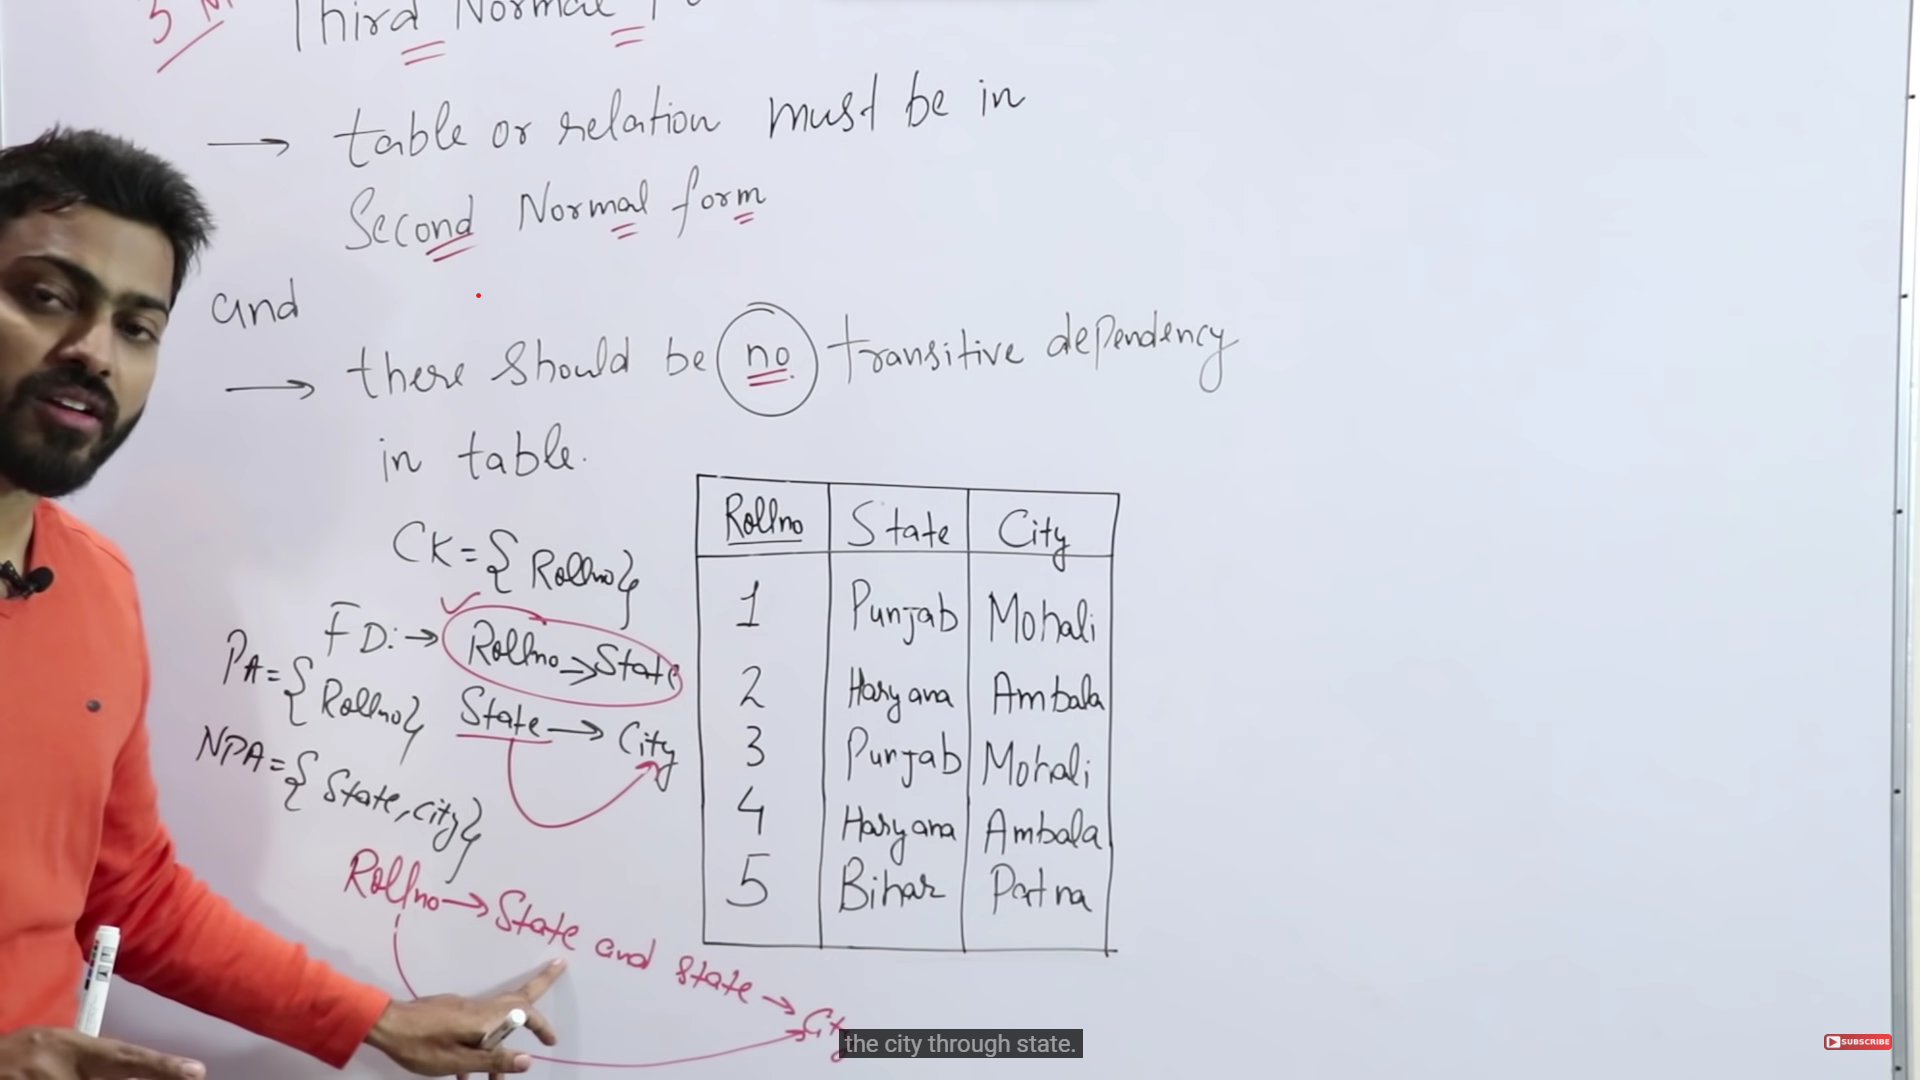 Third Normal
→ table or relation must be in
Second Normal form
and
→ there should be no transitive dependency
in table.
CK = { Rollno}
FD: → Rollno → State
PA = { Rollno}
State → City
NPA = { State, City}
Rollno → State and state → City
Rollno State City
1 Punjab Mohali
2 Haryana Ambala
3 Punjab Mohali
4 Haryana Ambala
5 Bihar Patna
the city through state.
SUBSCRIBE